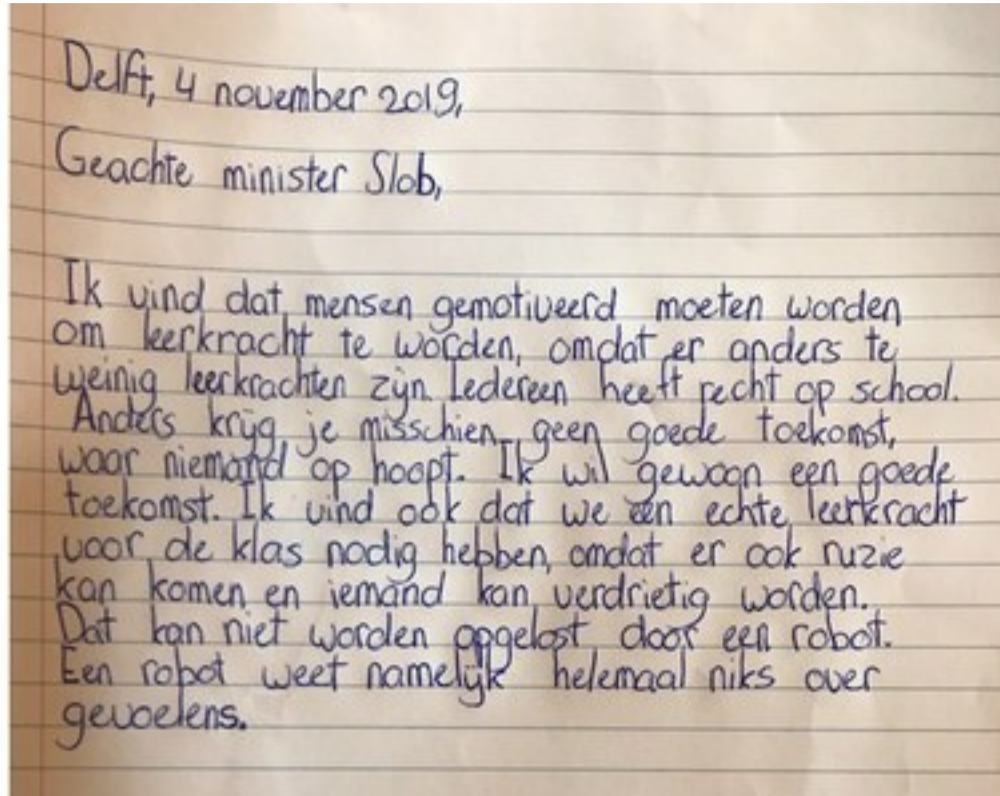 Delft, 4 november 2019,
Geachte minister Slob,
Ik vind dat mensen gemotiveerd moeten worden
om leerkracht te worden, omdat er anders te
weinig leerkrachten zijn. Iedereen heeft recht op school.
Anders krijg je misschien geen goede toekomst,
waar niemand op hoopt. Ik wil gewoon een goede
toekomst. Ik vind ook dat we een echte leerkracht
voor de klas nodig hebben, omdat er ook ruzie
kan komen en iemand kan verdrietig worden.
Dat kan niet worden opgelost door een robot.
Een robot weet namelijk helemaal niks over
gevoelens.